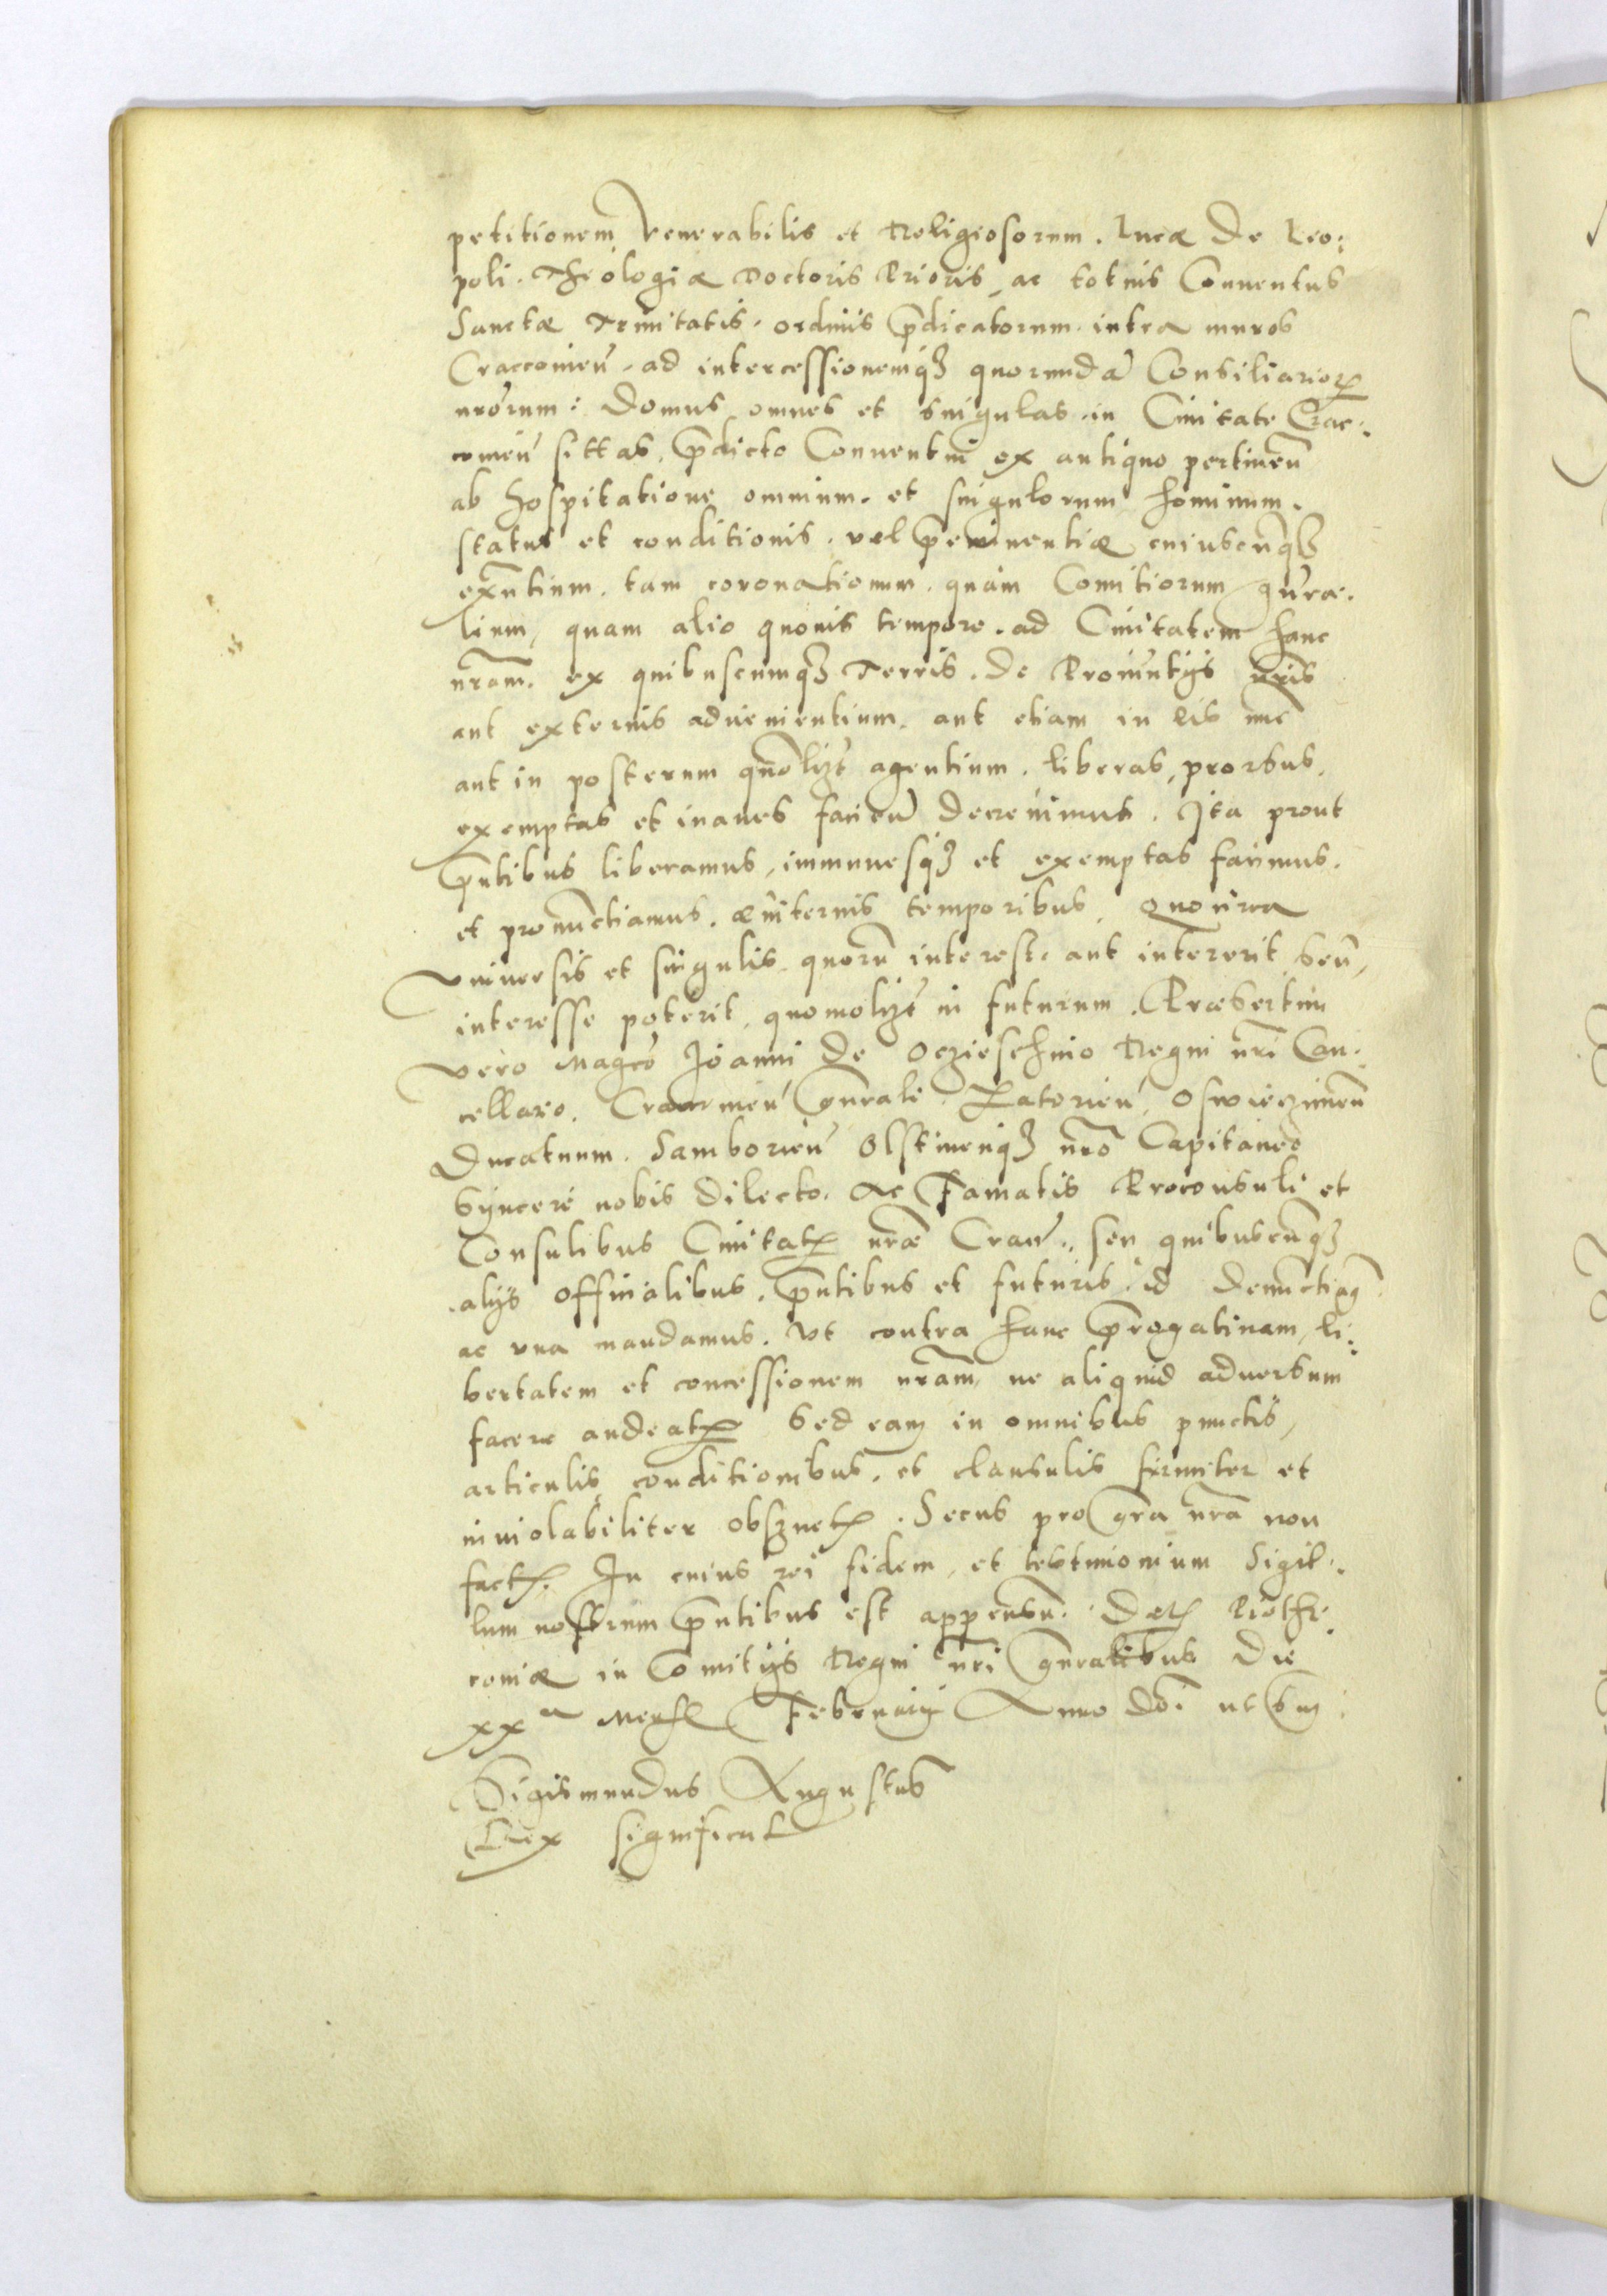 petitionem Venerabilis et Religiosorum. Lucæ De Leo:
poli. Theologiæ Doctoris Prioris, ac totius Conuentus
Sanctæ Trinitatis. ordinis p̃dicatorum. intra muros
Craccouień. ad intercessionemq̃ quorundã Consiliarioꝝ
nr̃orum: Domus omnes et singulas in Ciuitate Crac:
couień sittas, p̃dicto Conuentui ex antiquo pertineñ
ab hospitatione omnium. et singulorum hominum.
status et conditionis. vel p̃eminentiæ cuiuscunq̃
exñtium. tam coronationum. quàm Comitiorum gñræ.
lium, quam alio quouis tempore. ad Ciuitatem hanc
nr̃am. ex quibuscumq̃ Terris. De Prouintijs nr̃is
aut externis aduenientium. aut etiam in eis nũc
aut in posterum quõlizt agentium. liberas, prorsus,
exemptas et inanes facień decreuimus. Ita prout
p̃ntibus liberamus, immunesq̃ et exemptas facimus.
et pronũctiamus. æuiternis temporibus. Quocirca
Vniuersis et singulis. quorũ interest. aut intererit seũ,
interesse poterit, quomolizt in futurum. Præsertim
vero Mag̃co Ioanni De Oczieschino Regni nr̃i Can:
cellario. Cracouień Gñrali. Zatorień, Oswieczimeñ
Ducatuum. Samborień Olstinenq̃ nr̃o Capitaneo
Syncerè nobis Dilecto. Ac Famatis Proconsuli et
Consulibus Ciuitatꝭ nr̃æ Crac̃., seu quibuscunq̃
alijs Officialibus. p̃ntibus et futuris. id denũctiaꝫ
ac vna mandamus. Vt contra hanc p̃rogatiuam, li:
bertatem et concessionem nr̃am, ne aliquid aduersum
facere audeatꝭ Sed eam in omnibus punctis,
articulis conditionibus. et clausulis firmiter et
inuiolabiliter obsꝫuetꝭ. Secus pro gr̃a nr̃a non
factꝭ. In cuius rei fidem, et testimonium Sigil:
lum nostrum p̃ntibus est appensũ. Datꝭ Piothr:
couiæ in Comitijs Regni nr̃i gñralibus Die
xx a Mensꝭ Februarij Anno Do͂i ut
Sigismundus Augustus
Rex significat